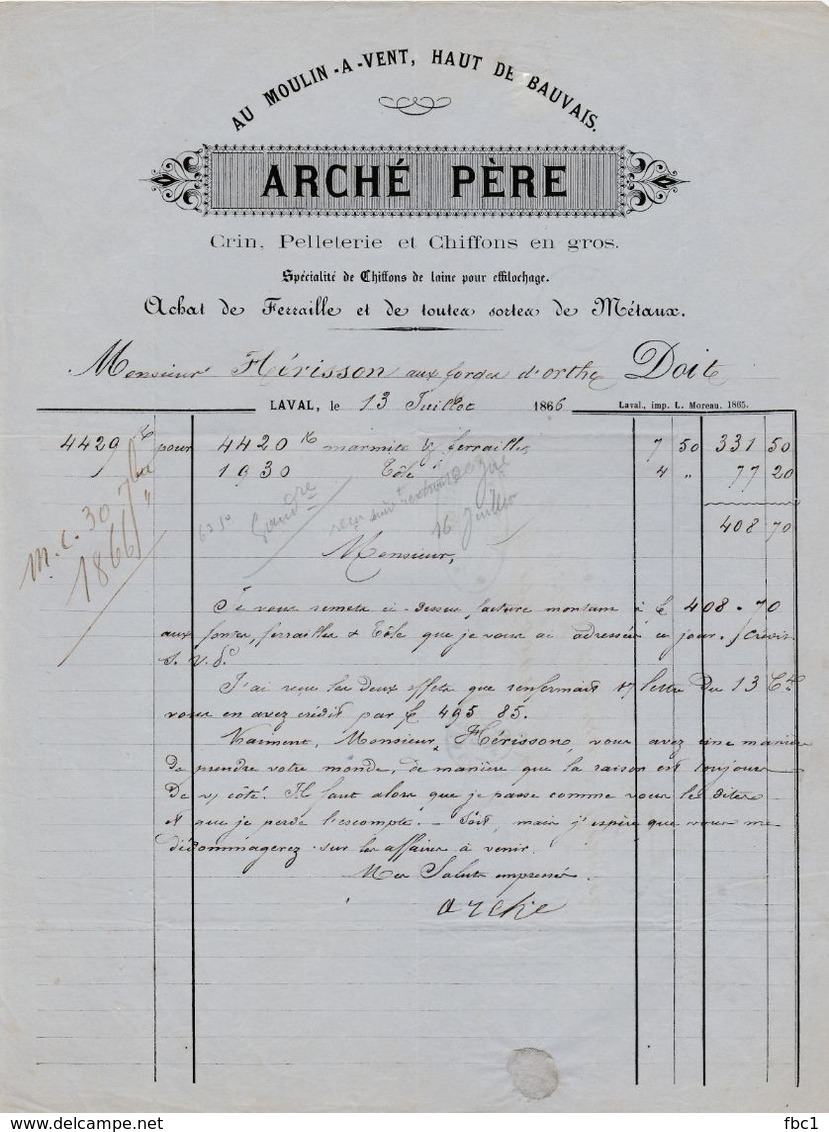 AU MOULIN-A-VENT, HAUT DE BAUVAIS.
ARCHÉ PÈRE
Crin, Pelleterie et Chiffons en gros.
Spécialité de Chiffons de laine pour effilochage.
Achat de Ferraille et de toutes sortes de Métaux.
Monsieur Hérisson aux forges d'orthe Doit
LAVAL, le 13 Juillet 1866 Laval, imp. L. Moreau. 1865.
4429 k pour 4420 k marmite & ferrailles 7 50 331 50
1930 Tôle 4 " 77 20
408 70
M.C. 30 7bre
1866
16 juillet
Monsieur,
Je vous remets ci-dessus facture montant à f 408-70
aux fontes, ferrailles & Tôle que je vous ai adressées ce jour.
S.V.P.
J'ai reçu les deux effets que renfermait v/ lettre du 13 Ct
vous en avez crédit par f 495 85.
Vraiment, Monsieur Hérisson, vous avez une manière
de prendre votre monde, de manière que la raison est toujours
de v/ côté. Il faut alors que je passe comme vous les dites
et que je perde l'escompte. - Soit, mais j'espère que vous me
dédommagerez sur les affaires à venir.
Mes Saluts empressés.
Arché
delcampe.net
fbc1